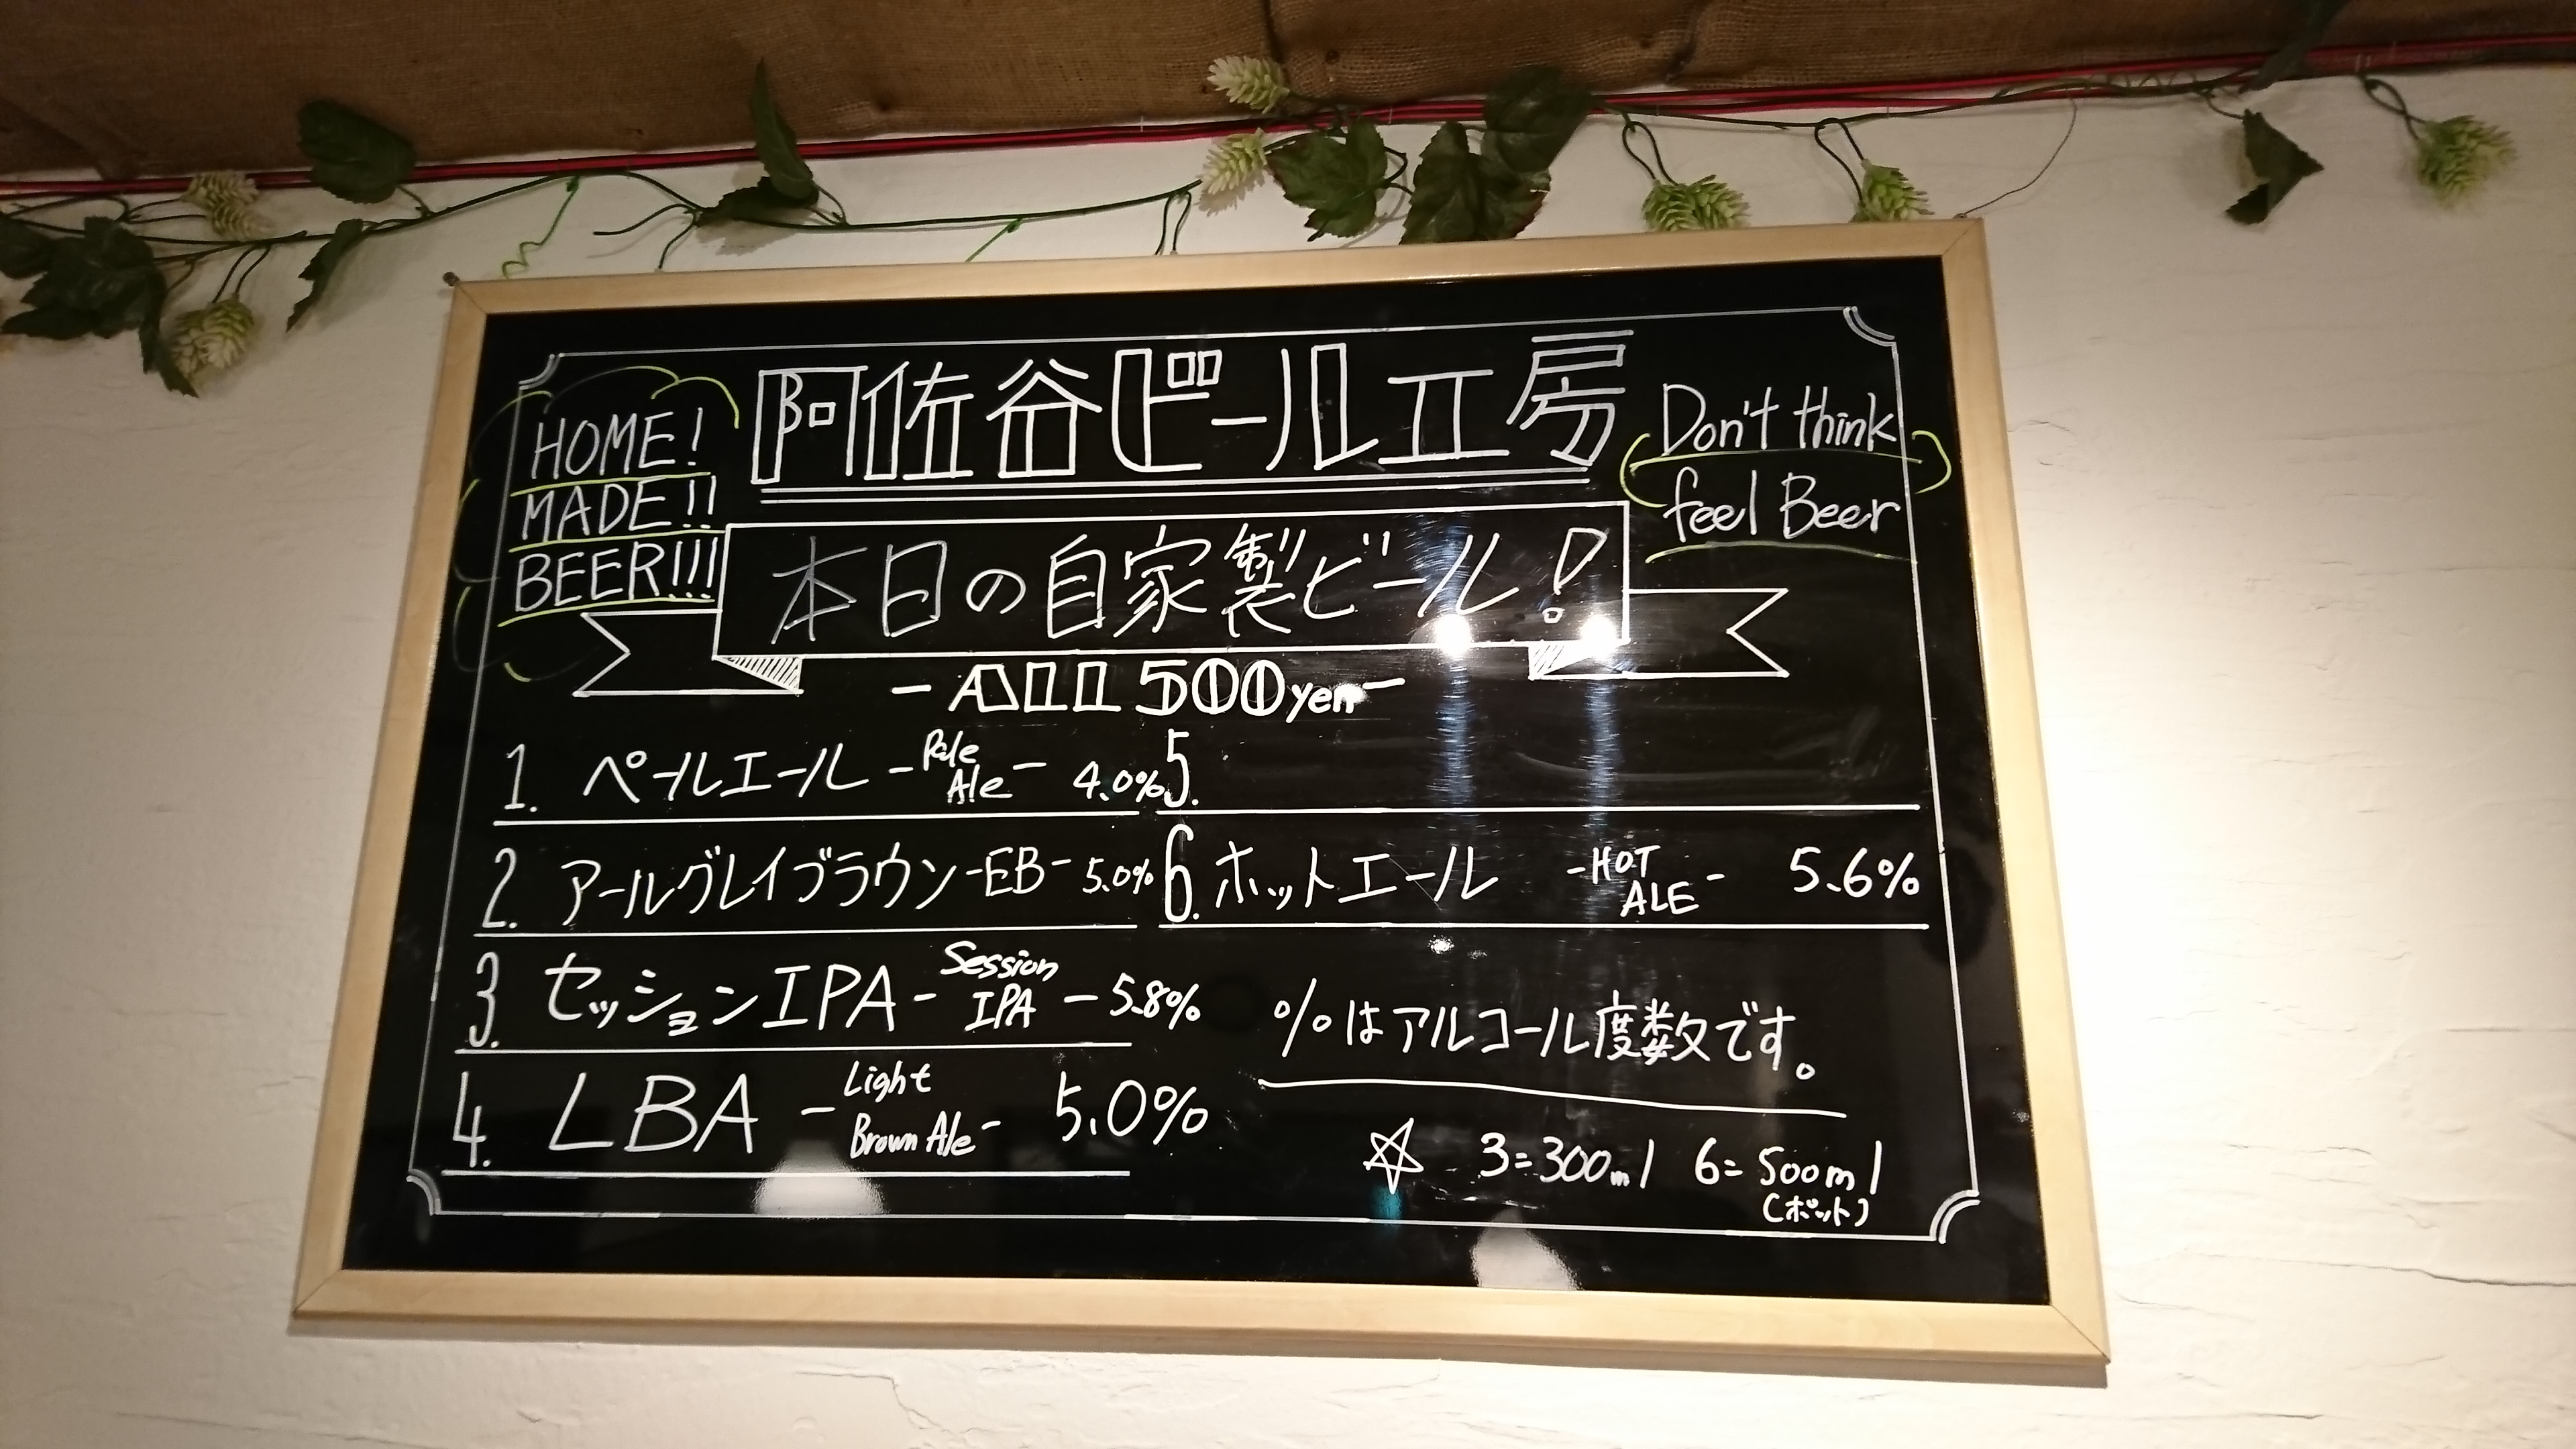 阿佐谷ビール工房
HOME!
MADE!!
BEER!!!
Don't think
feel Beer
本日の自家製ビール!
-ALL 500yen-
1. ペールエール -Pale Ale- 4.0%
2. アールグレイブラウン-EB- 5.0%
3. セッションIPA -Session IPA- 5.8%
4. LBA -Light Brown Ale- 5.0%
5.
6. ホットエール -HOT ALE- 5.6%
%はアルコール度数です。
☆ 3=300ml 6=500ml
(ポット)